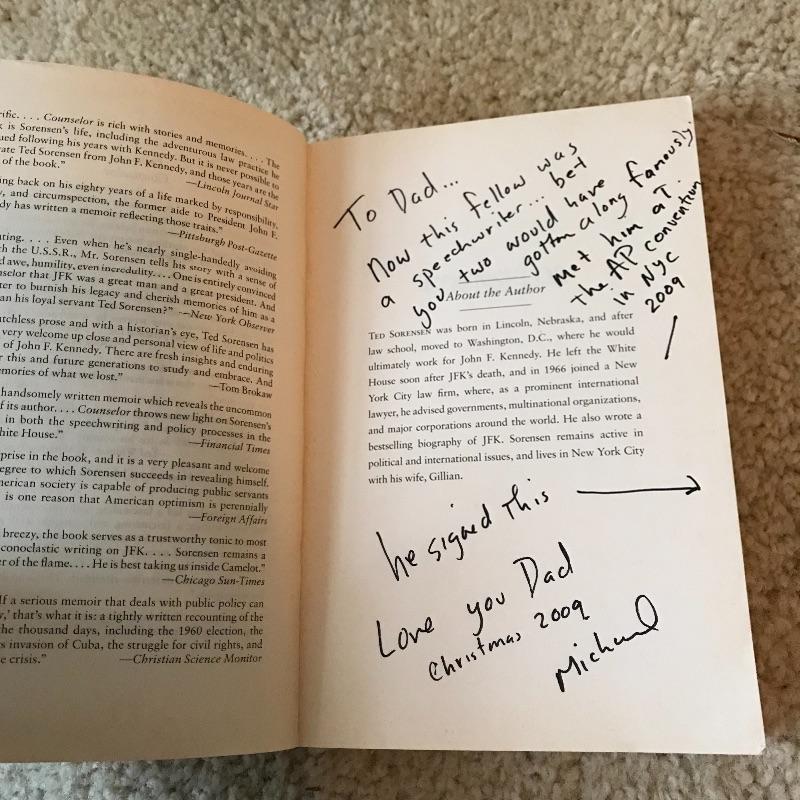 rific. . . . Counselor is rich with stories and memories. . . . The
k is Sorensen's life, including the adventurous law practice he
ued following his years with Kennedy. But it is never possible to
rate Ted Sorensen from John F. Kennedy, and those years are the
of the book."
—Lincoln Journal Star
ing back on his eighty years of life marked by responsibility,
y, and circumspection, the former aide to President John F.
dy has written a memoir reflecting those traits."
—Pittsburgh Post-Gazette
ating. . . . Even when he's nearly single-handedly avoiding
h the U.S.S.R., Mr. Sorensen tells his story with a sense of
d awe, humility, even incredulity. . . . One is entirely convinced
selor that JFK was a great man and a great president. And
ter to burnish his legacy and cherish memories of him as a
an his loyal servant Ted Sorensen?" —New York Observer
tchless prose and with a historian's eye, Ted Sorensen has
very welcome up close and personal view of life and politics
of John F. Kennedy. There are fresh insights and enduring
r this and future generations to study and embrace. And
emories of what we lost."
—Tom Brokaw
handsomely written memoir which reveals the uncommon
f its author. . . . Counselor throws new light on Sorensen's
in both the speechwriting and policy processes in the
hite House."
—Financial Times
prise in the book, and it is a very pleasant and welcome
egree to which Sorensen succeeds in revealing himself.
merican society is capable of producing public servants
is one reason that American optimism is perennially
—Foreign Affairs
breezy, the book serves as a trustworthy tonic to most
conoclastic writing on JFK. . . . Sorensen remains a
r of the flame. . . . He is best taking us inside Camelot."
—Chicago Sun-Times
If a serious memoir that deals with public policy can
,' that's what it is: a tightly written recounting of the
the thousand days, including the 1960 election, the
s invasion of Cuba, the struggle for civil rights, and
e crisis."
—Christian Science Monitor
To Dad...
Now this fellow was
a speechwriter... bet
you two would have
gotten along famously.
Met him at
the AP convention
in NYC
2009
About the Author
TED SORENSEN was born in Lincoln, Nebraska, and after
law school, moved to Washington, D.C., where he would
ultimately work for John F. Kennedy. He left the White
House soon after JFK's death, and in 1966 joined a New
York City law firm, where, as a prominent international
lawyer, he advised governments, multinational organizations,
and major corporations around the world. He also wrote a
bestselling biography of JFK. Sorensen remains active in
political and international issues, and lives in New York City
with his wife, Gillian.
he signed this
Love you Dad
Christmas 2009
Michael